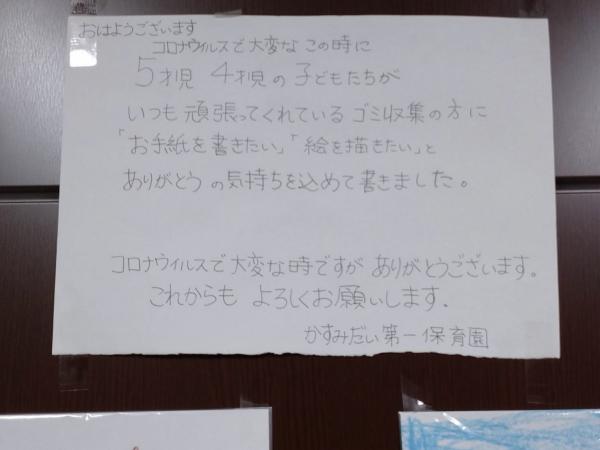 おはようございます
コロナウイルスで大変な この時に
5才児 4才児の子どもたちが
いつも頑張ってくれているゴミ収集の方に
「お手紙を書きたい」「絵を描きたい」と
ありがとうの気持ちを込めて書きました。
コロナウイルスで大変な時ですが ありがとうございます。
これからも よろしくお願いします.
かすみだい第一保育園